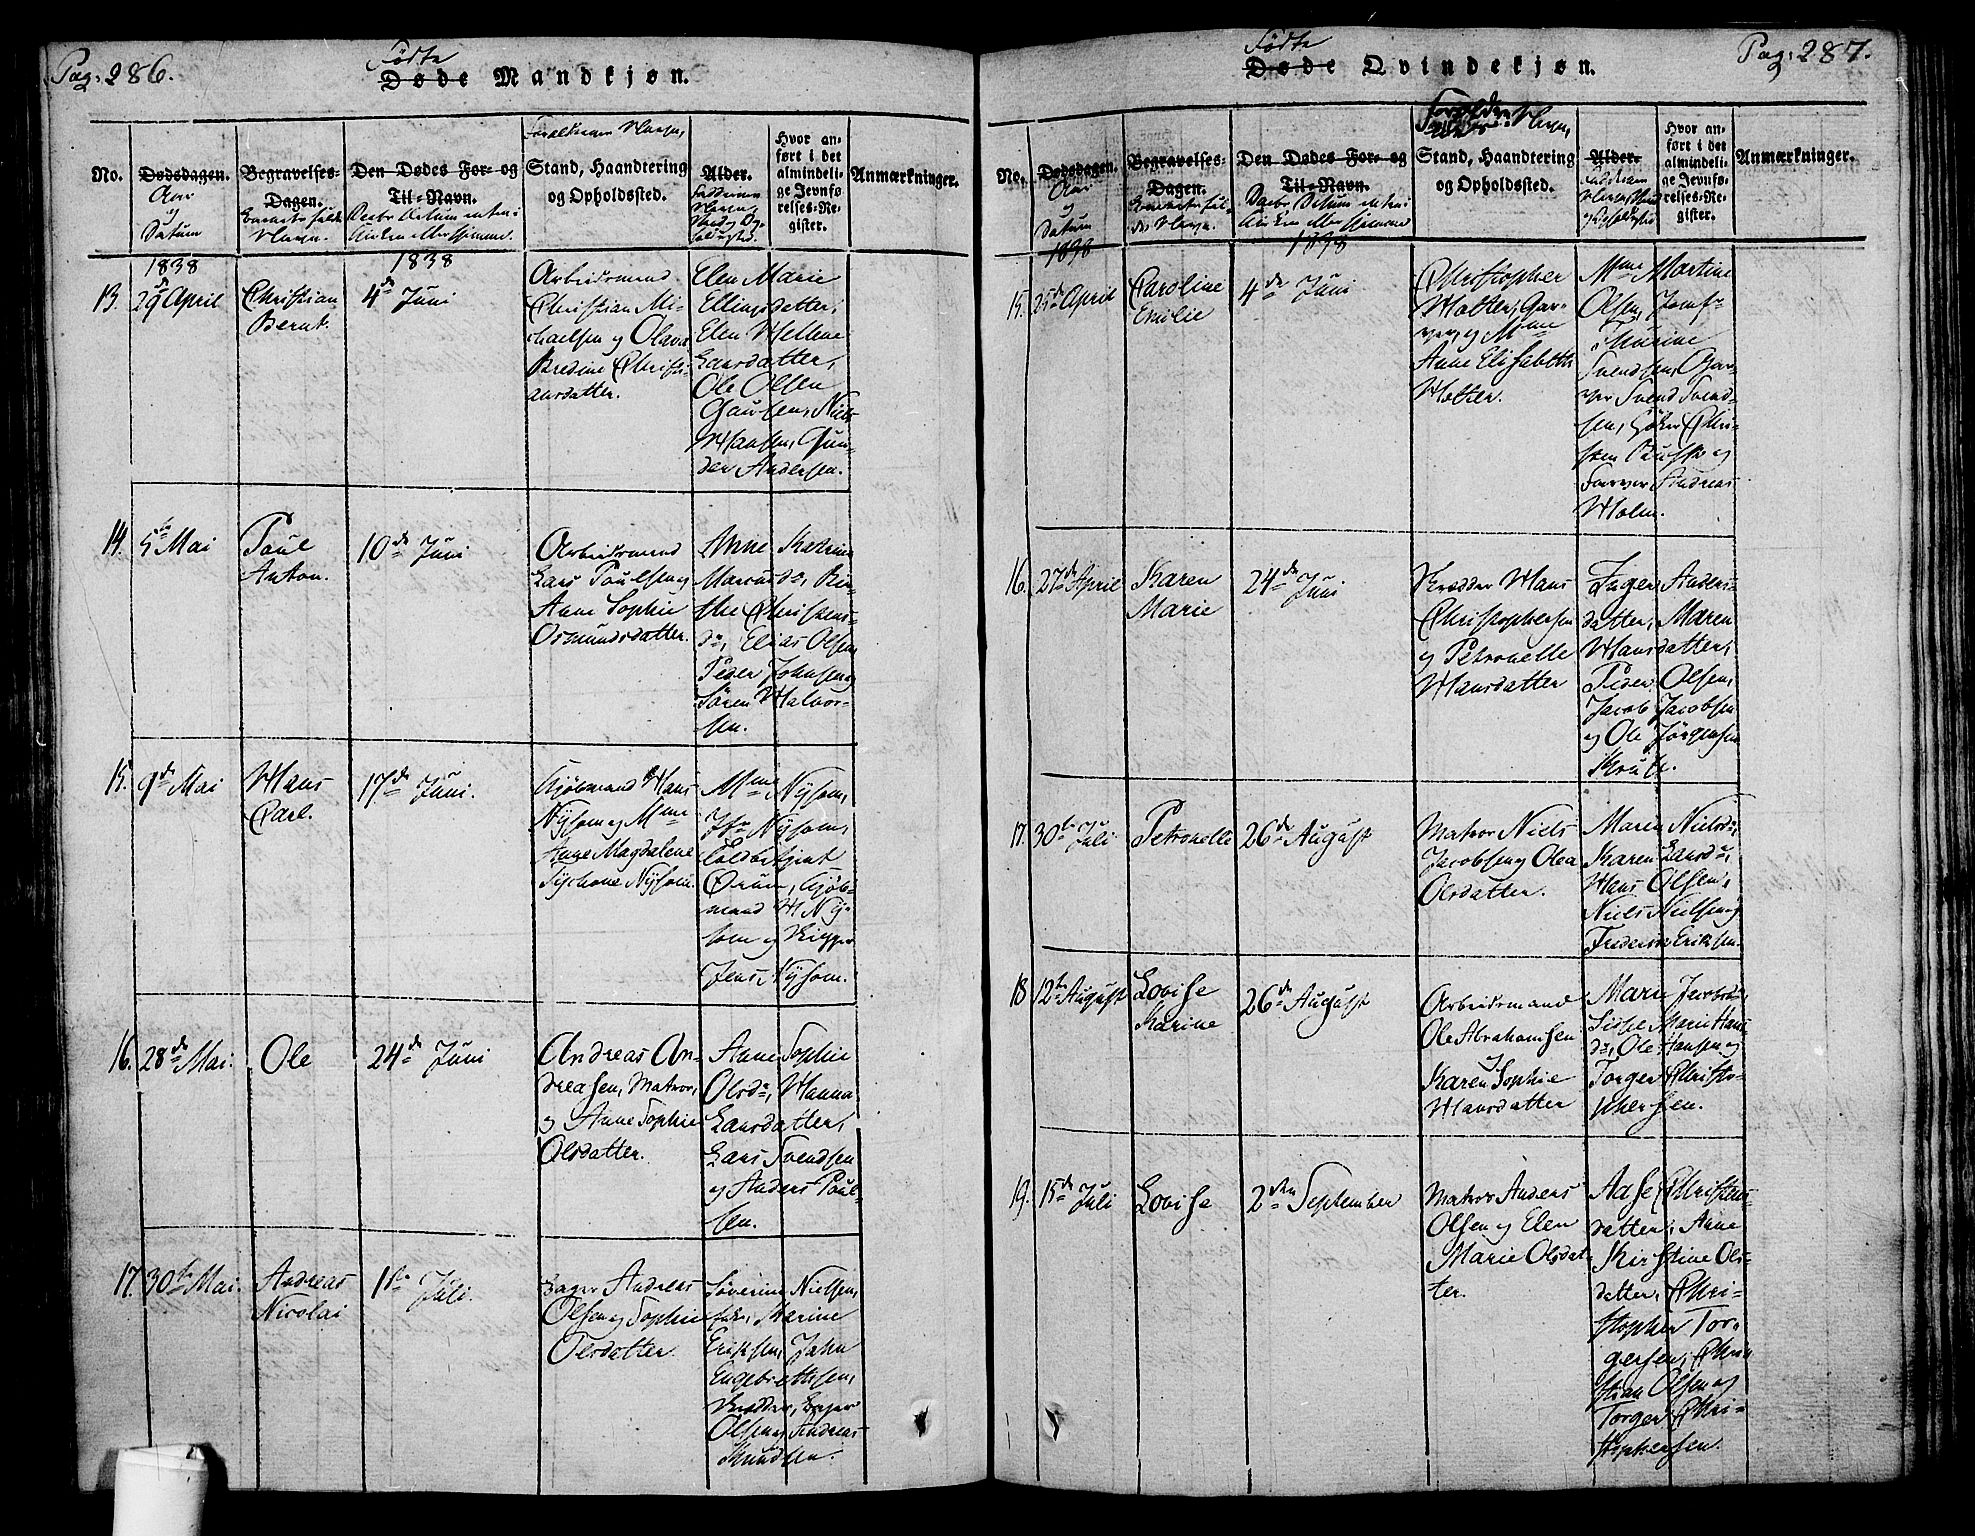 Pag. 286.
Fødte
Døde Mandkjøn.
Forældrenes Navn,
No.
Dødsdagen.
Aar
og
Datum
Begravelses-
Dagen.
Barnets fulde
Navn.
Den Dødes For- og
Til-Navn.
Stand, Haandtering
og Opholdssted.
Alder.
Faddernes
Navn,
Stand og Op-
holdssted.
Hvor an-
ført i det
almindeli-
ge Jevnfø-
relses-Re-
gister.
Anmærkninger.
1838
1838
13.
29de April
Christian
Bernt.
4de Juni
Arbeidsmand
Christian Mi-
chaelsen og Olava
Bredine Christi-
ansdatter.
Elen Marie
Ellingsdatter,
Elen Hellene
Larsdatter,
Ole Olsen
Gaursen, Niels
Hansen, Gun-
der Andersen.
14.
5te Mai
Poul
Anton.
10de Juni
Arbeidsmand
Lars Poulsen og
Anne Sophie
Osmundsdatter.
Anne Katrine
Marcusdr, Bir-
the Christens-
dr, Elias Olsen,
Peder Johnsen og
Søren Halvor-
sen.
15.
9de Mai
Hans
Carl.
17de Juni.
Kjøbmand Hans
Nysom og Mme
Anne Magdalene
Tychone Nysom.
Mme Nysom,
Jfr Nysom,
Toldbetjent
Ørum, Kjøb-
mand H. Ny-
som og Skipper
Jens Nysom.
16.
28de Mai.
Ole
24de Juni
Andreas An-
dreasen, Matros,
og Anne Sophie
Olsdatter.
Anne Sophie
Olsdr, Hanna
Larsdatter,
Lars Svendsen
og Anders Poul-
sen.
17.
30te Mai.
Andreas
Nicolai
1ste Juli.
Bager Andreas
Olsen og Sophie
Olsdatter.
Severine Nielsen,
Marine
Eriksen, John
Engebrethsen,
Skrædder, Bager
Olsen og Andreas
Knudsen.
Pag. 287.
Fødte
Døde Qvindekjøn.
Forældrenes Navn,
No.
Dødsdagen.
Aar
og
Datum
Begravelses-
Dagen.
Barnets ful-
de Navn.
Den Dødes For- og
Til-Navn.
Stand, Haandtering
og Opholdssted.
Alder.
Faddernes
Navn, Stand
og Opholdssted
Hvor an-
ført i det
almindeli-
ge Jevnfø-
relses-Re-
gister.
Anmærkninger.
1838
1838
15.
25de April
Caroline
Emilie
4de Juni
Christopher
Holter, Gar-
ver, og Mme
Anne Elisabeth
Holter.
Mme Martine
Olsen, Jomfr
Thurine
Svendsen, Gar-
ver Svend Svend-
sen, Christen
og
Farver Andreas
Holm.
16.
27de April
Karen
Marie
24de Juni
Skrædder Hans
Christophersen
og Petronelle
Hansdatter
Inger Anders-
datter, Maren
Hansdatter,
Peder Olsen,
Jacob Jacobsen
og Ole Jørgensen
17.
30te Juli
Petronelle
26de August
Matros Niels
Jacobsen og Olea
Olsdatter.
Maren Nielsdr,
Karen Larsdr,
Hans Olsen,
Niels Nielsen og
Frederik Eriksen.
18
12te August
Lovise
Karine
26de August
Arbeidsmand
Ole Abrahamsen
Karen Sophie
Hansdatter
Maren Jacobsdr,
Sispe Marie Hans-
dr, Ole Hansen og
Torger Christo-
phersen.
19.
15de Juli
Lovise
2den September
Matros Anders
Olsen og Elen
Marie Olsdat-
ter.
Aase Christens-
datter, Anne
Kirstine Ols-
datter, Chri-
stopher Tor-
gersen, Chri-
stian Olsen og
Torger Chri-
stophersen.